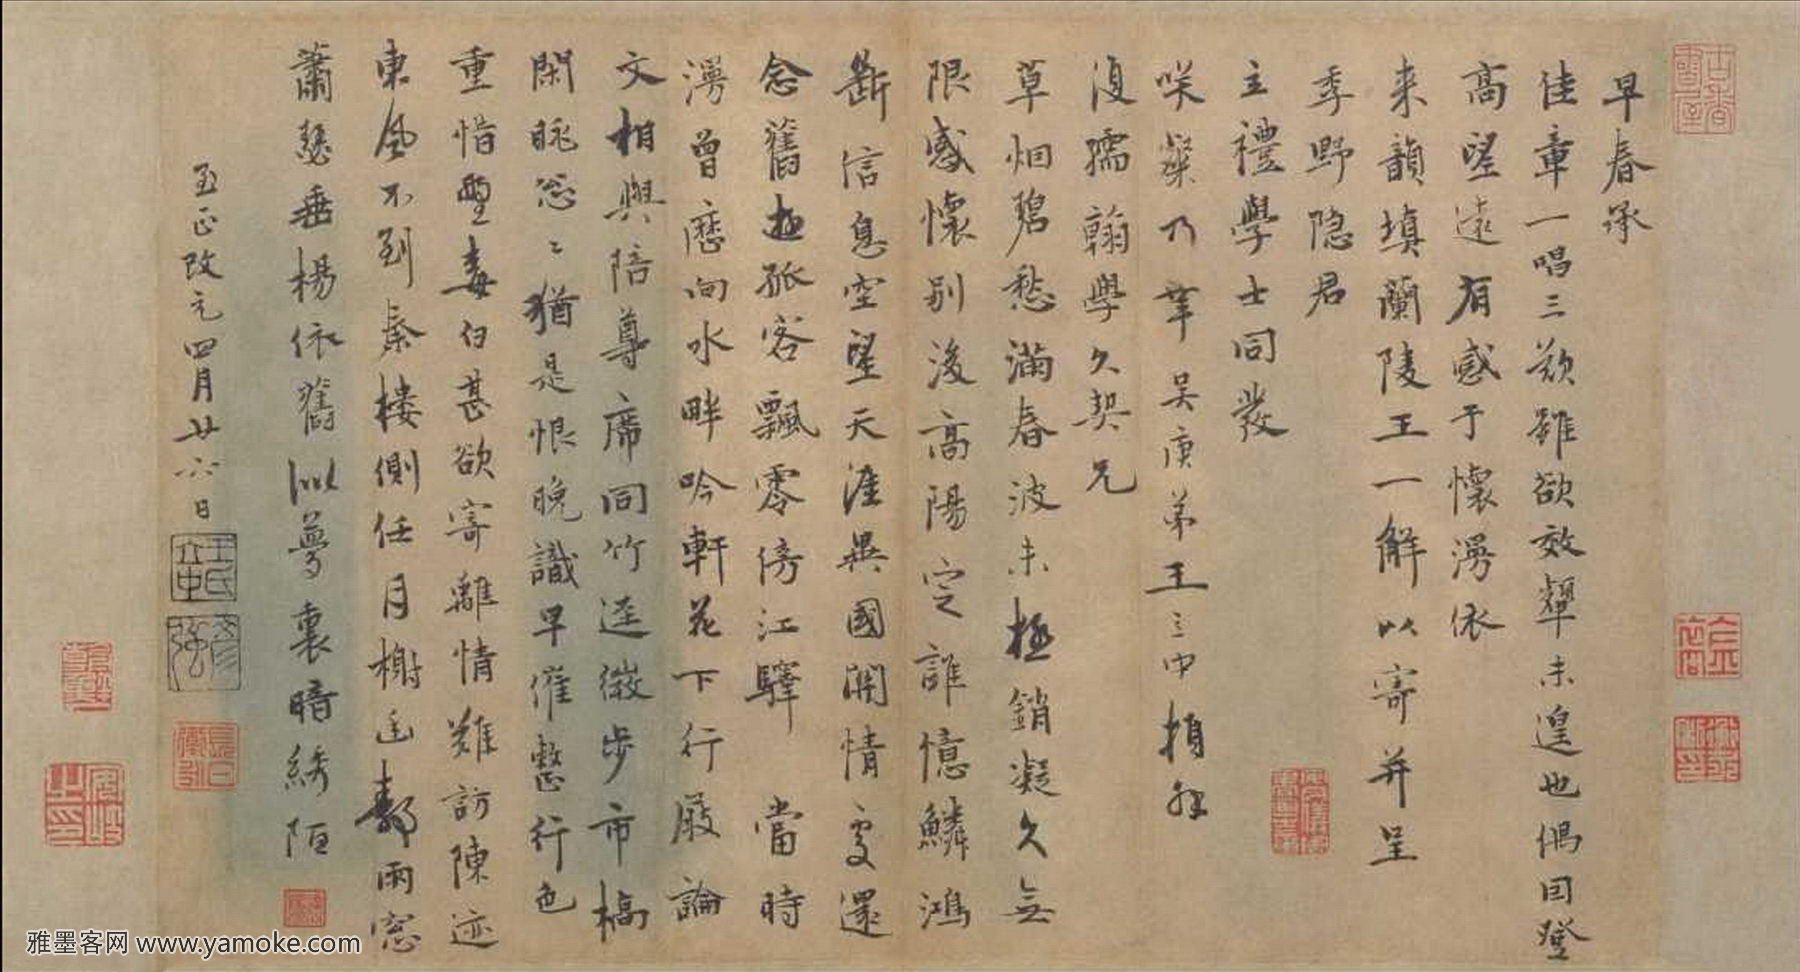 早春承
佳章一唱三歎雖欲效顰未遑也偶因登
高望遠有感于懷漫依
来韻填蘭陵王一解以寄并呈
季野隐君
主禮學士同發
咲粲乃幸吴庚弟王立中頓
復孺翰學久契兄
草烟碧愁滿春波未極銷凝久無
限感懷别後高陽定誰憶鱗鴻
斷信息空望天涯異國関情處還
念舊逰孤客飄零傍江驛 當時
漫曾歴向水畔吟軒花下行屐論
文相與陪尊席同竹逕微步市橋
閑眺怱〻猶是恨晚識早催整行色
重惜白甚欲寄離情難訪陳迹
東風不到秦樓側任月榭雨窓
蕭瑟垂楊依舊似夢裏暗綉陌
至正改元四月廿六日
王氏立中
彦強
雅墨客网 www.yamoke.com